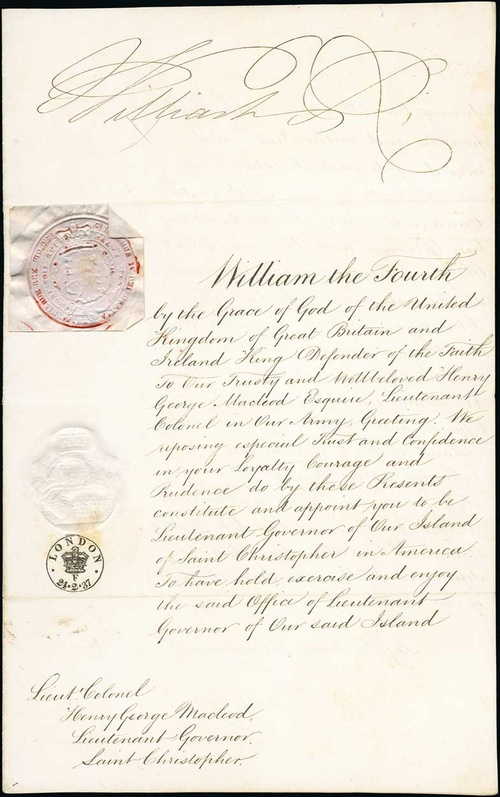 William R.
William the Fourth
by the Grace of God of the United
Kingdom of Great Britain and
Ireland King Defender of the Faith
To Our Trusty and Wellbeloved Henry
George Macleod Esquire, Lieutenant
Colonel in Our Army, Greeting. We
reposing especial Trust and Confidence
in your Loyalty Courage and
Prudence do by these Presents
constitute and appoint you to be
Lieutenant Governor of Our Island
of Saint Christopher in America
To have hold, exercise and enjoy
the said Office of Lieutenant
Governor of Our said Island
LONDON
F
24·2·37
Lieut. Colonel
Henry George Macleod,
Lieutenant Governor,
Saint Christopher.